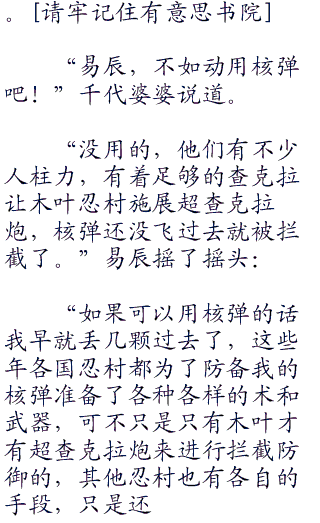 。[请牢记住有意思书院]
“易辰，不如动用核弹
吧！”千代婆婆说道。
“没用的，他们有不少
人柱力，有着足够的查克拉
让木叶忍村施展超查克拉
炮，核弹还没飞过去就被拦
截了。”易辰摇了摇头：
“如果可以用核弹的话
我早就丢几颗过去了，这些
年各国忍村都为了防备我的
核弹准备了各种各样的术和
武器，可不只是只有木叶才
有超查克拉炮来进行拦截防
御的，其他忍村也有各自的
手段，只是还